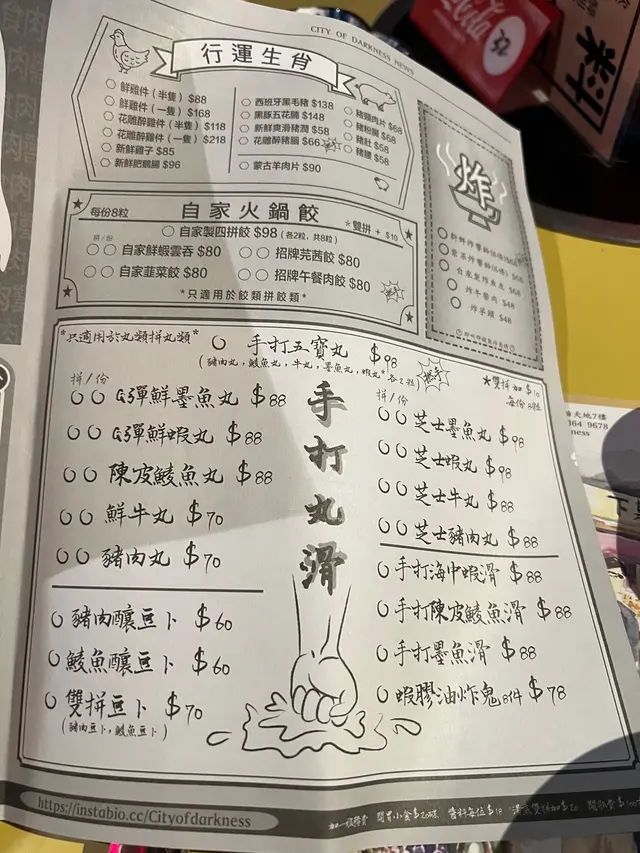 CITY OF DARKNESS NEWS
行運生肖
鮮雞件(半隻) $88
鮮雞件(一隻) $168
花雕醉雞件(半隻) $118
花雕醉雞件(一隻) $218
新鮮雞子 $85
新鮮肥鵝腸 $96
西班牙黑毛豬 $138
黑豚五花腩 $148
新鮮爽滑豬潤 $58
花雕醉豬腦 $66
蒙古羊肉片 $90
豬頸肉片 $68
豬粉腸 $68
豬肚 $58
豬腰 $58
炸
炸芋頭 $48
每份8粒
自家火鍋餃
*雙拼 + $10
自家製四拼餃 $98 (各2粒, 共8粒)
拼/份
自家鮮蝦雲吞 $80
招牌芫茜餃 $80
自家韭菜餃 $80
招牌午餐肉餃 $80
*只適用於餃類拼餃類*
*只適用於丸類拼丸類*
手打五寶丸 $98
(豬肉丸, 鯪魚丸, 牛丸, 墨魚丸, 蝦丸*各2粒)
★雙拼加$10
每份8粒
手打丸滑
拼/份
QQ彈鮮墨魚丸 $88
QQ彈鮮蝦丸 $88
陳皮鯪魚丸 $88
鮮牛丸 $70
豬肉丸 $70
豬肉釀豆卜 $60
鯪魚釀豆卜 $60
雙拼豆卜 $70
(豬肉豆卜, 鯪魚豆卜)
拼/份
芝士墨魚丸 $98
芝士蝦丸 $98
芝士牛丸 $88
芝士豬肉丸 $88
手打海中蝦滑 $88
手打陳皮鯪魚滑 $88
手打墨魚滑 $88
蝦膠油炸鬼8件 $78
https://instabio.cc/Cityofdarkness
加一服務費
醬料每位$18
364 9678
料